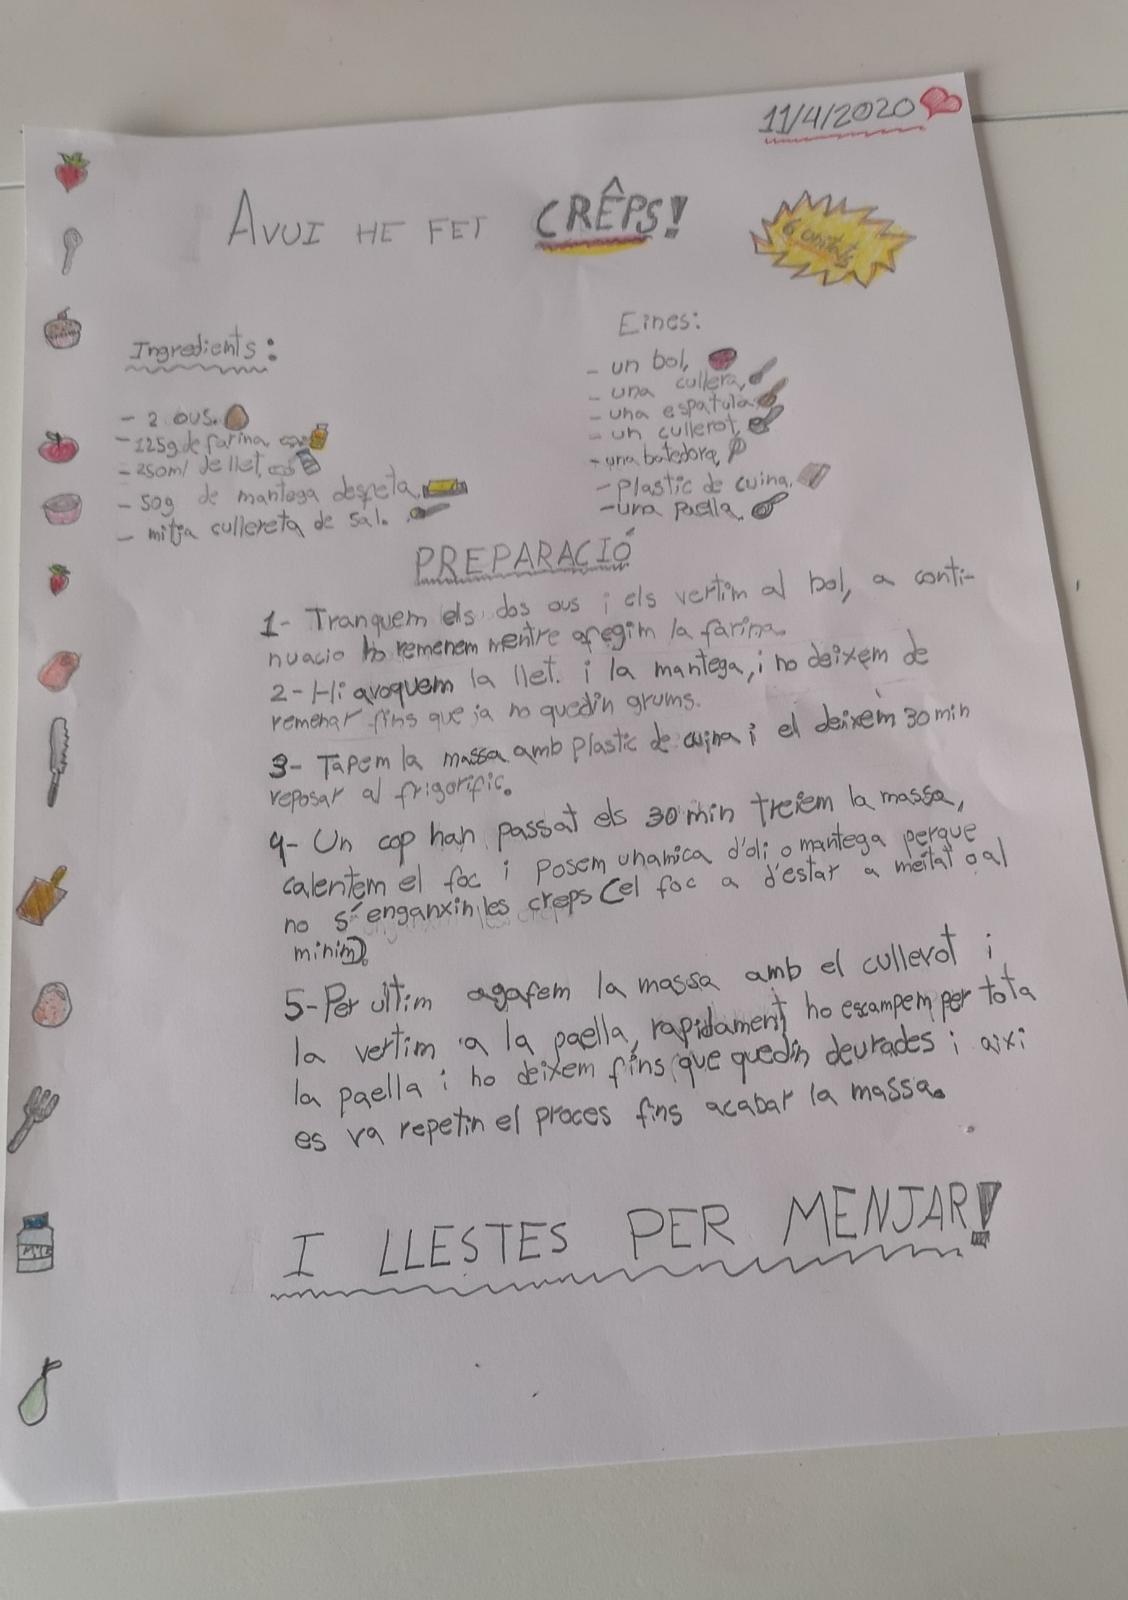 11/4/2020
AVUI HE FET CRÊPS!
6 unitats
Ingredients:
- 2 ous.
- 125g de farina,
- 250ml de llet,
- 50g de mantega desfeta,
- mitja cullereta de sal.
Eines:
- un bol,
- una cullera,
- una espatula,
- un cullerot,
- una batedora,
- plastic de cuina,
- una paella.
PREPARACIÓ
1- Tranquem els dos ous i els vertim al bol, a conti-
nuacio ho remenem mentre afegim la farina.
2- Hi avoquem la llet. i la mantega, i no deixem de
remenar fins que ja no quedin grums.
3- Tapem la massa amb plastic de cuina i el deixem 30 min
reposar al frigorific.
4- Un cop han passat els 30 min treiem la massa,
calentem el foc i posem una mica d'oli o mantega perque
no s'enganxin les creps (el foc a d'estar a meitat o al
minim).
5- Per ultim agafem la massa amb el cullerot i
la vertim a la paella, rapidament ho escampem per tota
la paella i ho deixem fins que quedin deurades i aixi
es va repetin el proces fins acabar la massa.
I LLESTES PER MENJAR!
MILK